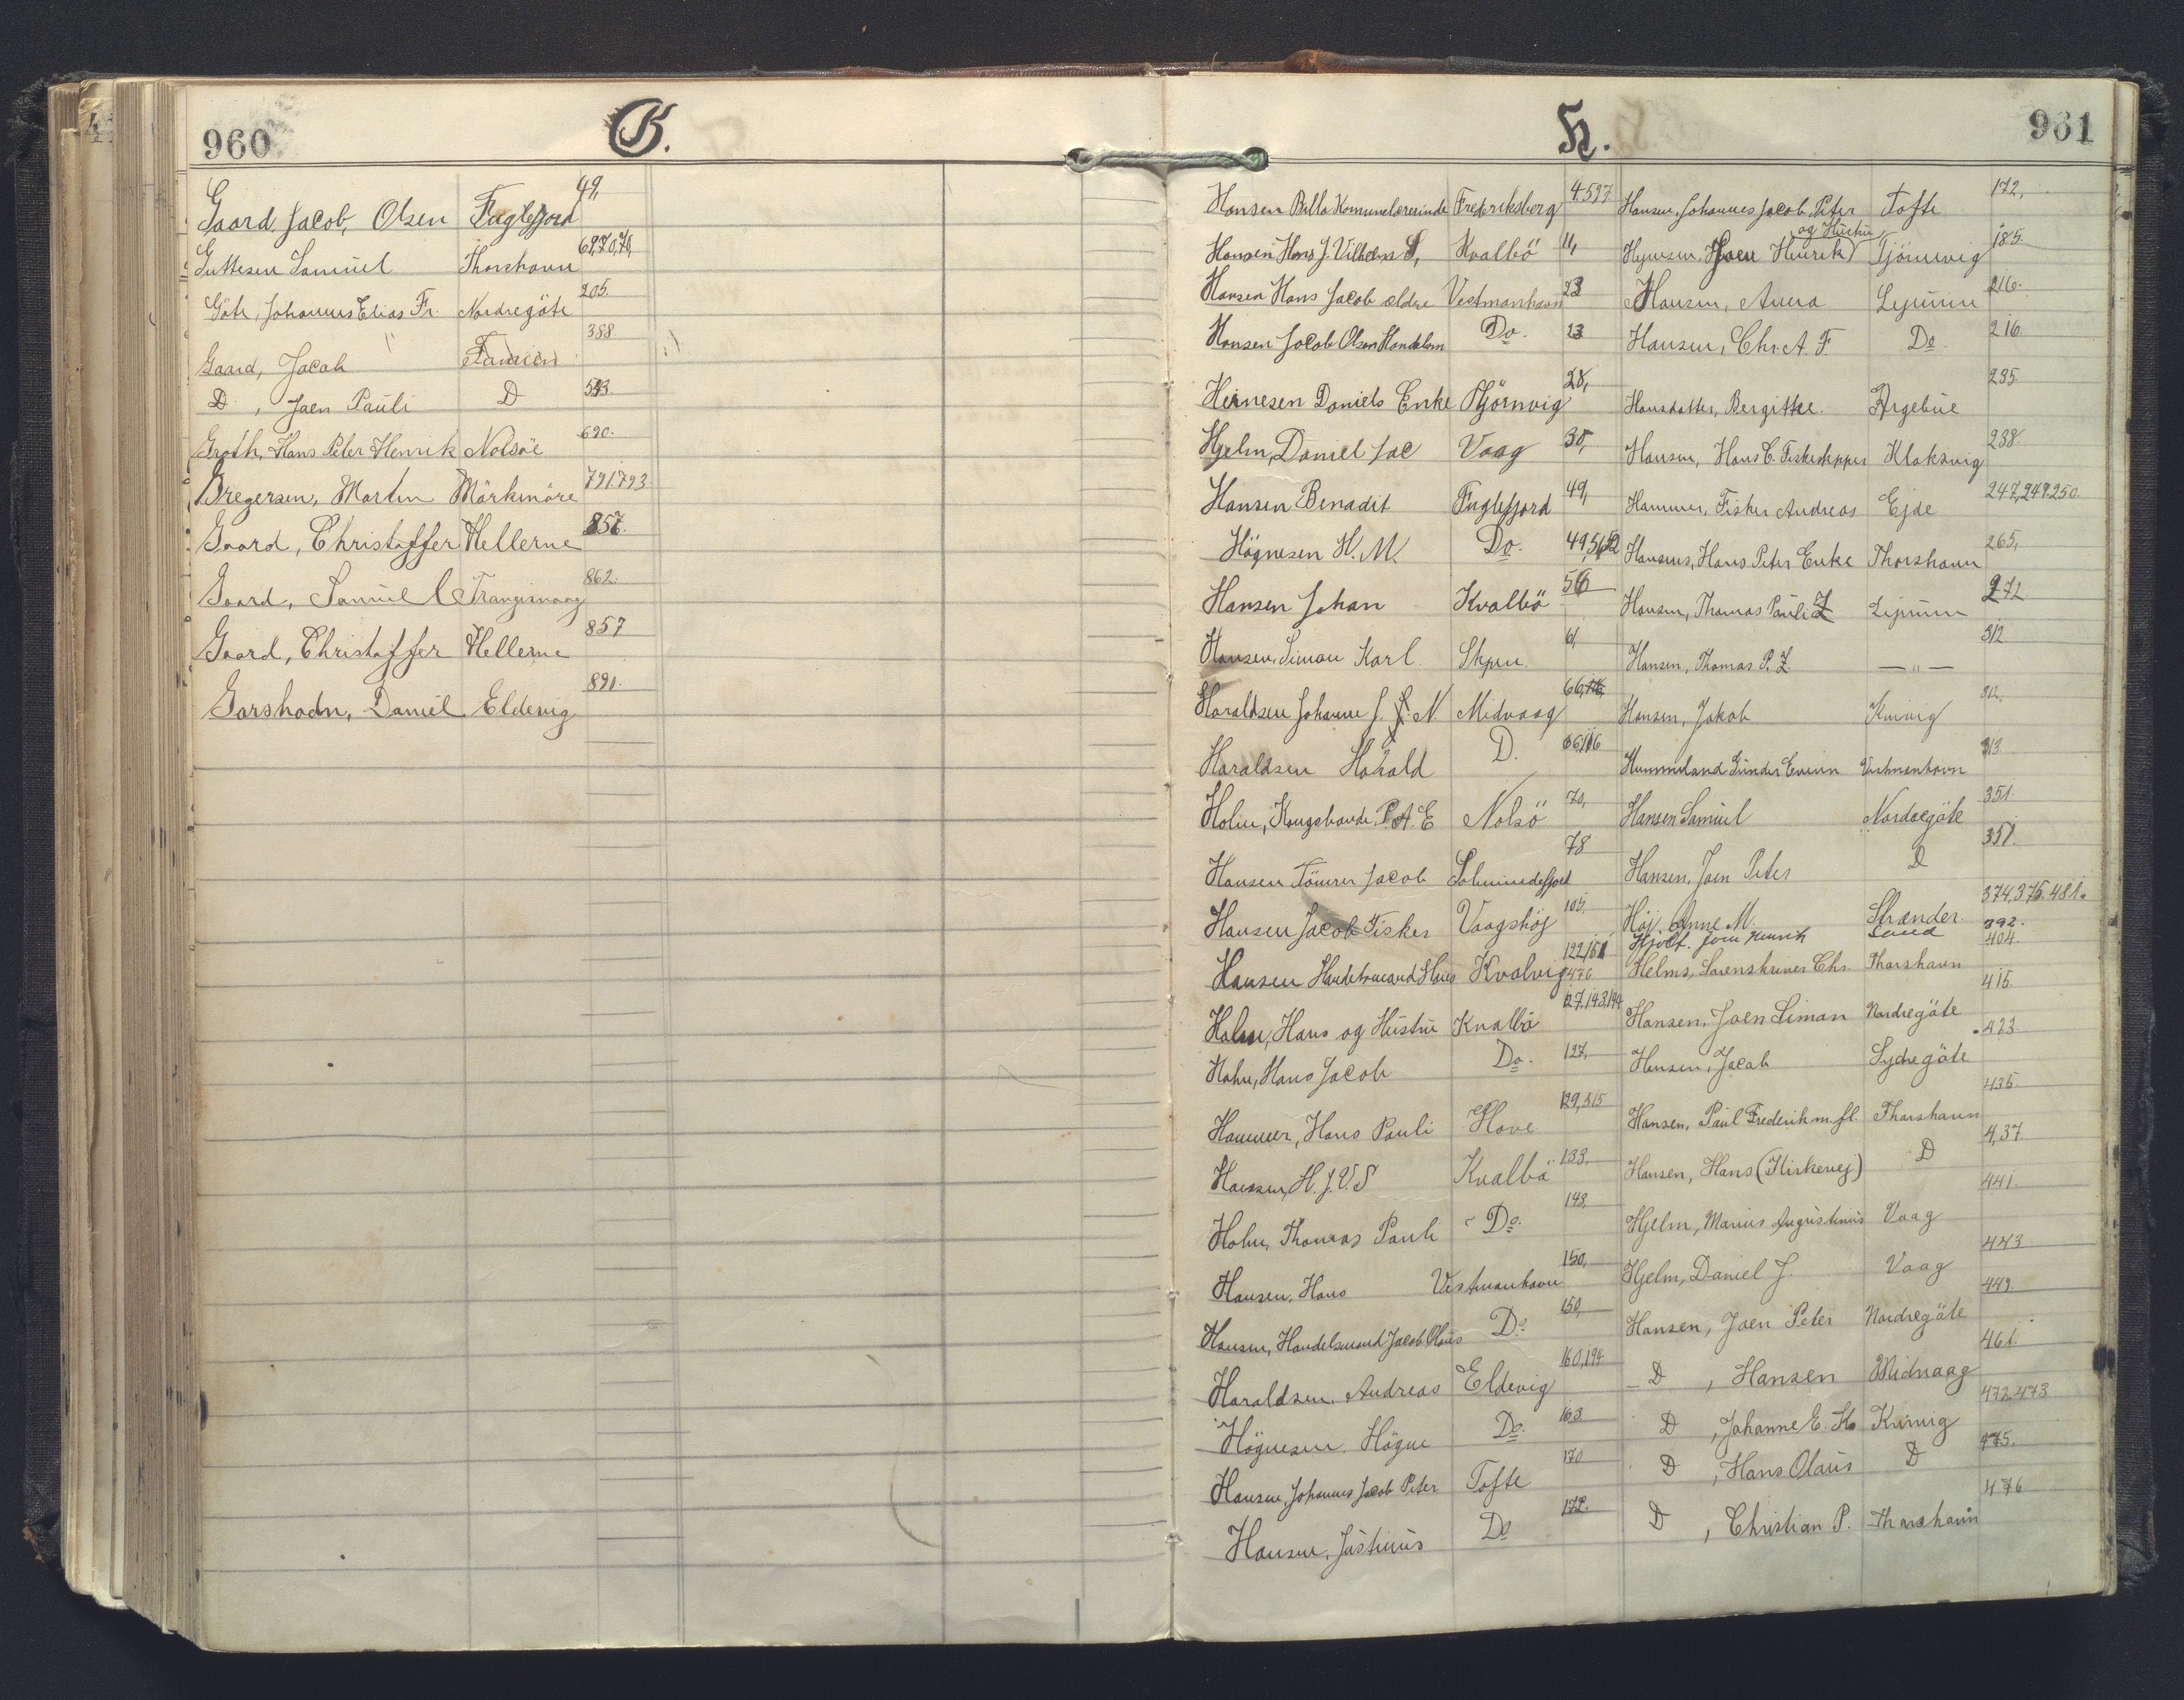 960
G.
Gaard, Jacob, Olsen Fuglefjord 49,
Guttesen Samuel Thorshavn 69,70,70,
Göte, Johannes Elias Fr. Nordregöte 205.
Gaard, Jacob Famien 388
D , Joen Pauli D 593
Groth, Hans Peter Henrik Nolsöe 690.
Gregersen, Martin Mörkenöre 791.793.
Gaard, Christoffer Hellerne 857.
Gaard, Samuel Trangisvaag 862.
Gaard, Christoffer Hellerne 857
Garshodn, Daniel Eldevig 891.
H.
961
Hansen Billa Kommunelærerinde Fredriksberg 4.597
Hansen Hans J. Vilhelm S, Kvalbö 11,
Hansen Hans Jacob ældre Vestmanhavn 23
Hansen Jacob Olsen Handelsm Do. 23
Heinesen Daniels Enke Tjörnvig 28,
Hjelm, Daniel Jac Vaag 30,
Hansen Benadit Fuglefjord 49,
Högnesen H. M. Do. 49,51,52
Hansen Johan Kvalbö 56
Hansen, Simon Karl. Skpen. 61,
Haraldsen Johanne J. N. Midvaag 66,
Haraldsen Harald D. 66,116
Holm, Kongsbonde, P. A. E Nolsö 70,
Hansen Tömrer Jacob 78
Hansen Jacob Fisker Vaagshöj 105,
Hansen Handelsmand Hans Kvalvig 122,151 476
Holm, Hans og Hustru Kvalbö 127,143,144
Holm, Hans Jacob Do. 127,
Hammer, Hans Pauli Hove 129,315
Hansen, H. J. V. S Kvalbö 133.
Holm, Thomas Pauli Do. 143,
Hansen, Hans Vestmanhavn 150,
Hansen, Handelsmand Jacob Olaus Do. 150,
Haraldsen, Andreas Eldevig 160,194
Högnesen, Högne Do. 163
Hansen, Johannes Jacob Peter Tofte 170
Hansen, Justinus Do 172.
Hansen, Johannes Jacob Peter Tofte 172,
og Hustru
Hejnesen, Joen Henrik Tjörnevig 185.
Hansen, Anna Lejrum 216.
Hansen, Chr. A. F. Do. 216
Hansdatter, Bergitte. Argebue 235.
Hansen, Hans C. Fiskeskipper Klaksvig 238.
Hammer, Fisker Andreas Ejde 247,248.250.
Hansens, Hans Peter Enke Thorshavn 265,
Hansen, Thomas Pauli Z Lejrum 272.
Hansen, Thomas P. Z. — " — 312
Hansen, Jakob Kunvig 312.
Hummeland Gunder Evenn Vestmanhavn 313
Hansen Samuel Nordregöte 351.
Hansen, Joen Peter D 351.
Höj, Anne M. Strænder. 374,375.481.
Hjölt. Joen Henrik Sand 392.
Helms, Sorenskriver Chr. Thorshavn 404.
Hansen, Joen Siman Nordregöte 415.
Hansen, Jacob Sydregöte 423.
Hansen, Paul Frederik m. fl. Thorshavn 435.
Hansen, Hans (Kirkevej) D 4,37
Hjelm, Marius Augustinus Vaag 441.
Hjelm, Daniel J. Vaag 443
Hansen, Joen Peter Nordregöte 449
D , Hansen Midvaag 461.
D , Johanne E. K. Kunvig 472.473
D , Hans Olaus D 475.
D , Christian P. Thorshavn 476